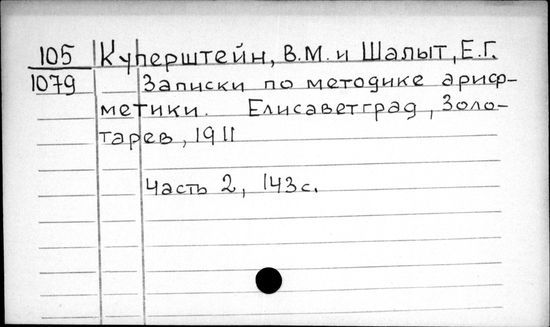 105 Куперштейн, В.М. и Шалыт, Е.Г.
1079 Записки по методике ариф-
метики. Елисаветград, Золо-
тарев, 1911
Часть 2, 143с.